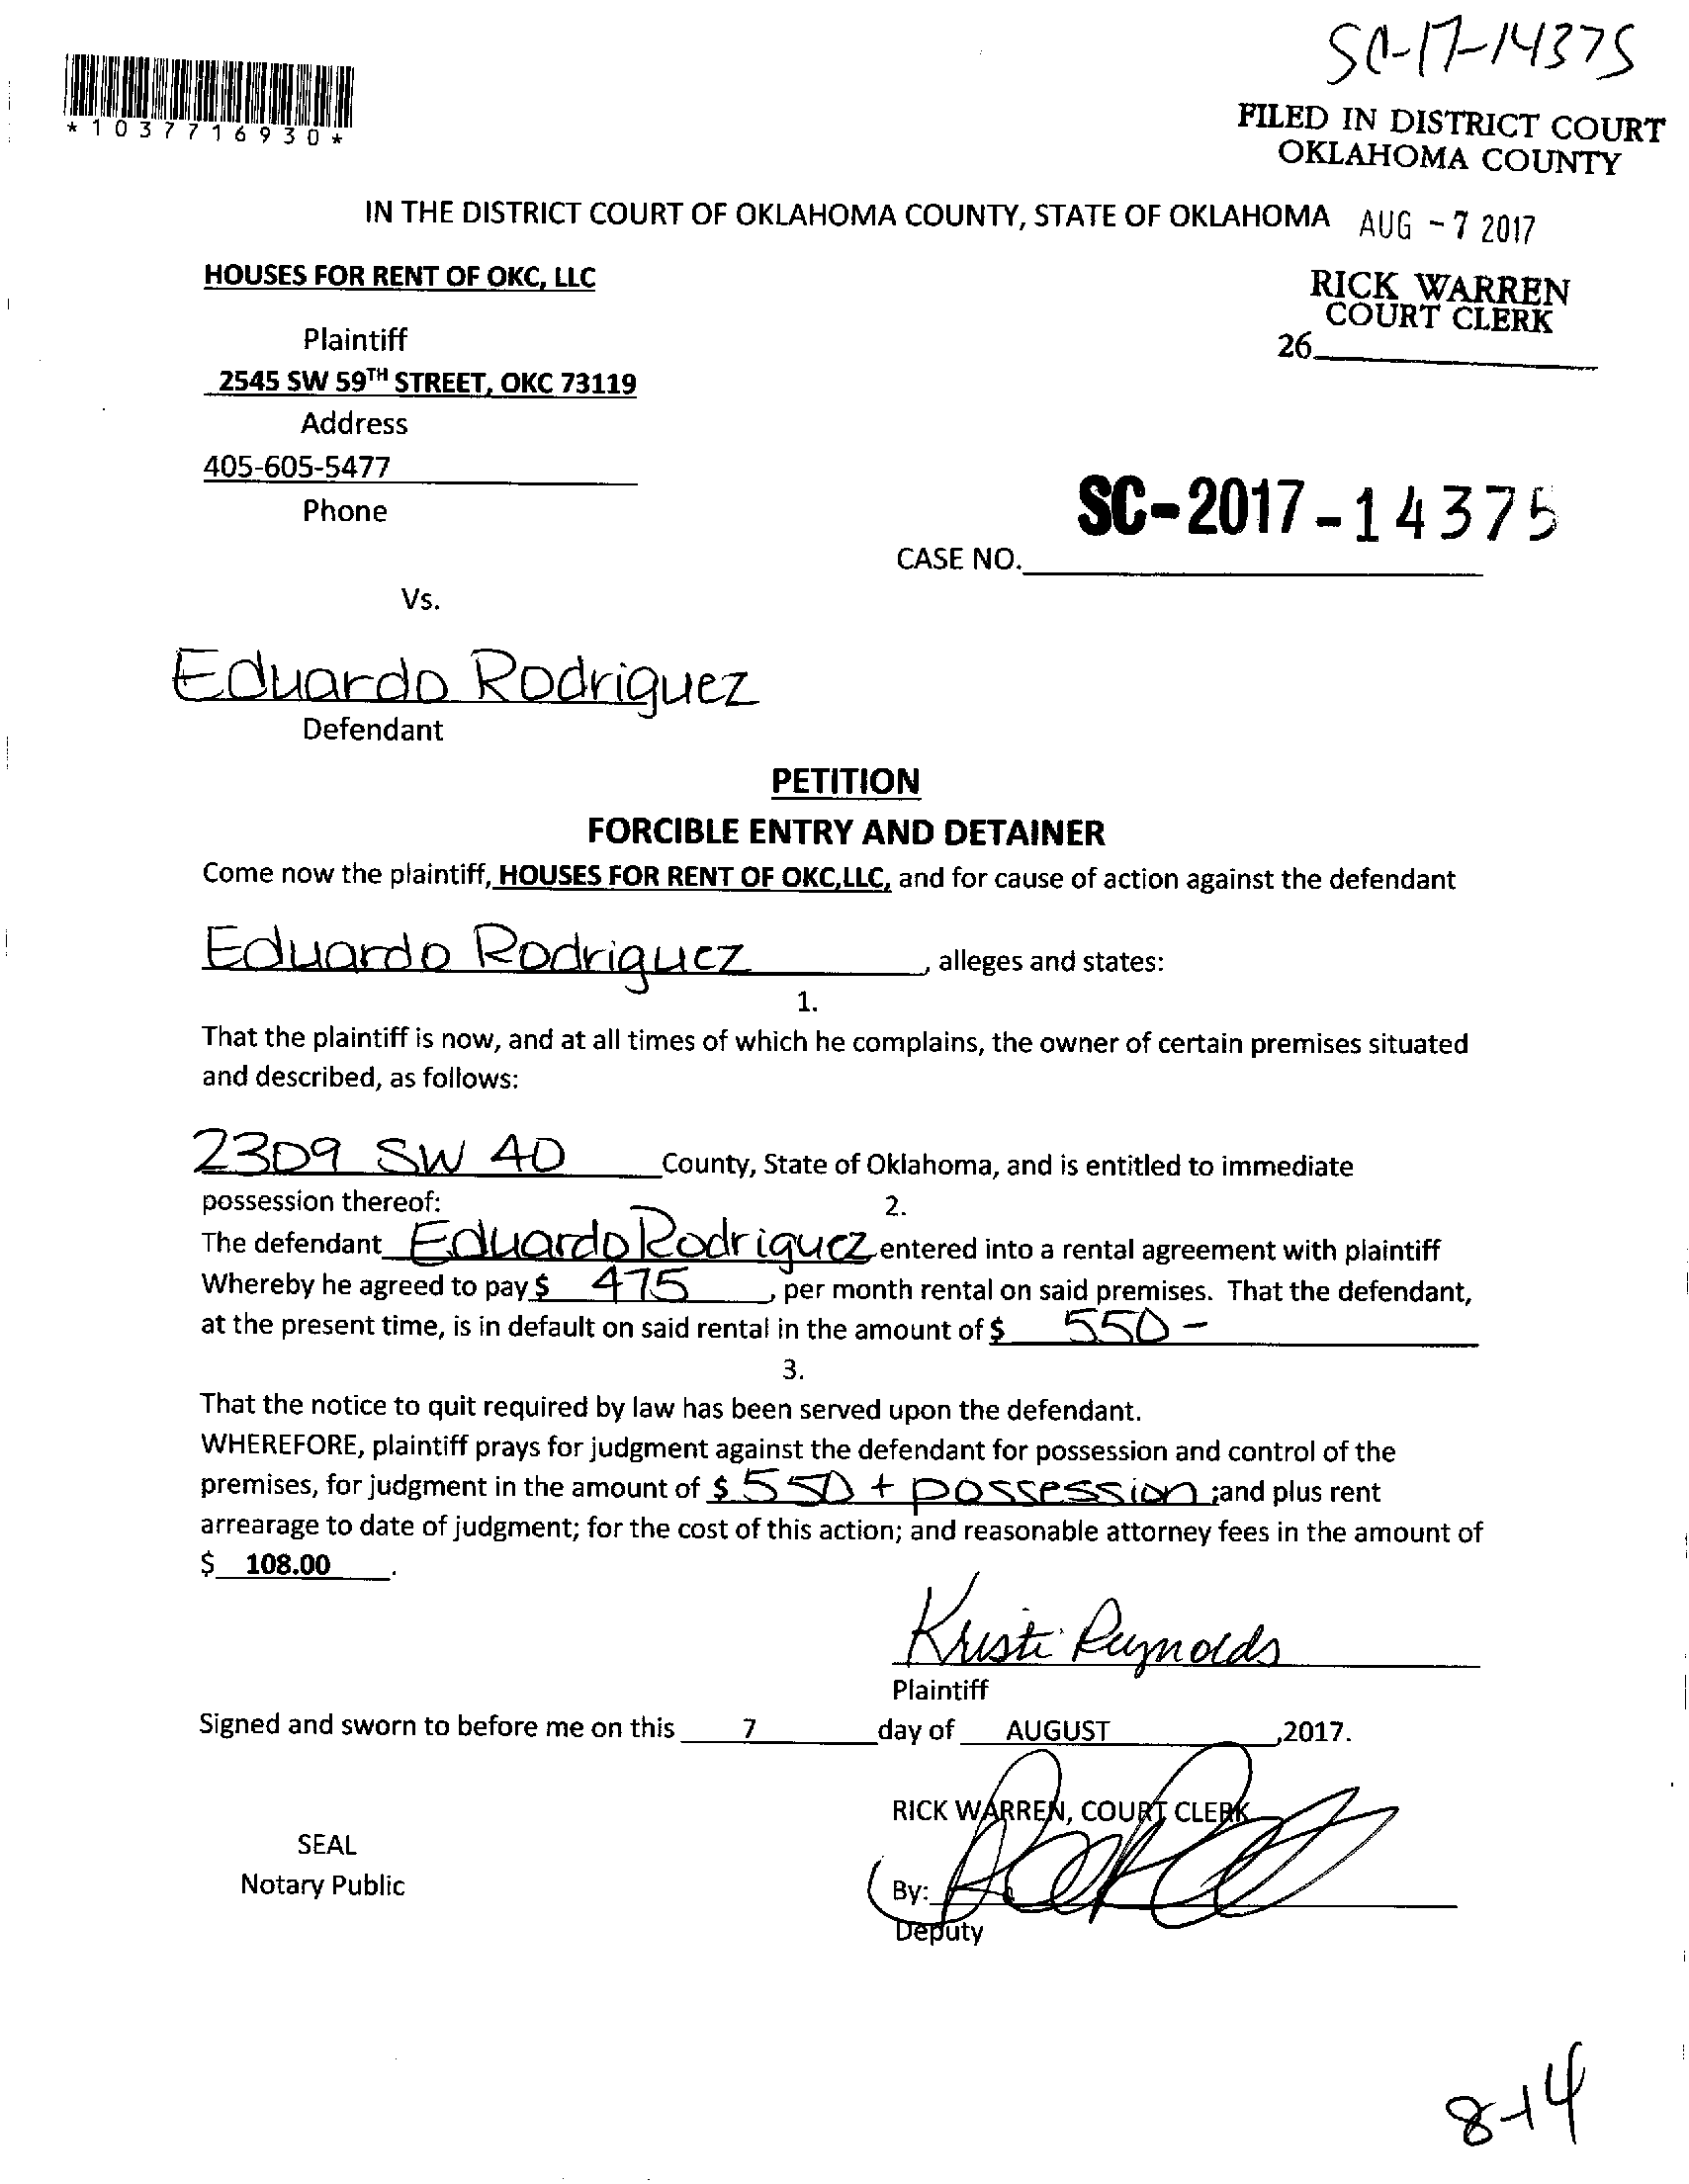 SC-17-14375
*1037716930*
FILED IN DISTRICT COURT
OKLAHOMA COUNTY
IN THE DISTRICT COURT OF OKLAHOMA COUNTY, STATE OF OKLAHOMA AUG - 7 2017
HOUSES FOR RENT OF OKC, LLC
RICK WARREN
COURT CLERK
Plaintiff
26
2545 SW 59TH STREET, OKC 73119
Address
405-605-5477
Phone
SC-2017-14375
CASE NO.
Vs.
Eduardo Rodriguez
Defendant
PETITION
FORCIBLE ENTRY AND DETAINER
Come now the plaintiff, HOUSES FOR RENT OF OKC,LLC, and for cause of action against the defendant
Eduardo Rodriguez, alleges and states:
1.
That the plaintiff is now, and at all times of which he complains, the owner of certain premises situated
and described, as follows:
2309 SW 40 County, State of Oklahoma, and is entitled to immediate
possession thereof:
2.
The defendant Eduardo Rodriguez entered into a rental agreement with plaintiff
Whereby he agreed to pay $ 475, per month rental on said premises. That the defendant,
at the present time, is in default on said rental in the amount of $ 550-
3.
That the notice to quit required by law has been served upon the defendant.
WHEREFORE, plaintiff prays for judgment against the defendant for possession and control of the
premises, for judgment in the amount of $ 550 + possession ;and plus rent
arrearage to date of judgment; for the cost of this action; and reasonable attorney fees in the amount of
$ 108.00.
Kristi Reynolds
Plaintiff
Signed and sworn to before me on this 7 day of AUGUST,2017.
RICK WARREN, COURT CLERK
SEAL
Notary Public
By:
Deputy
8-14